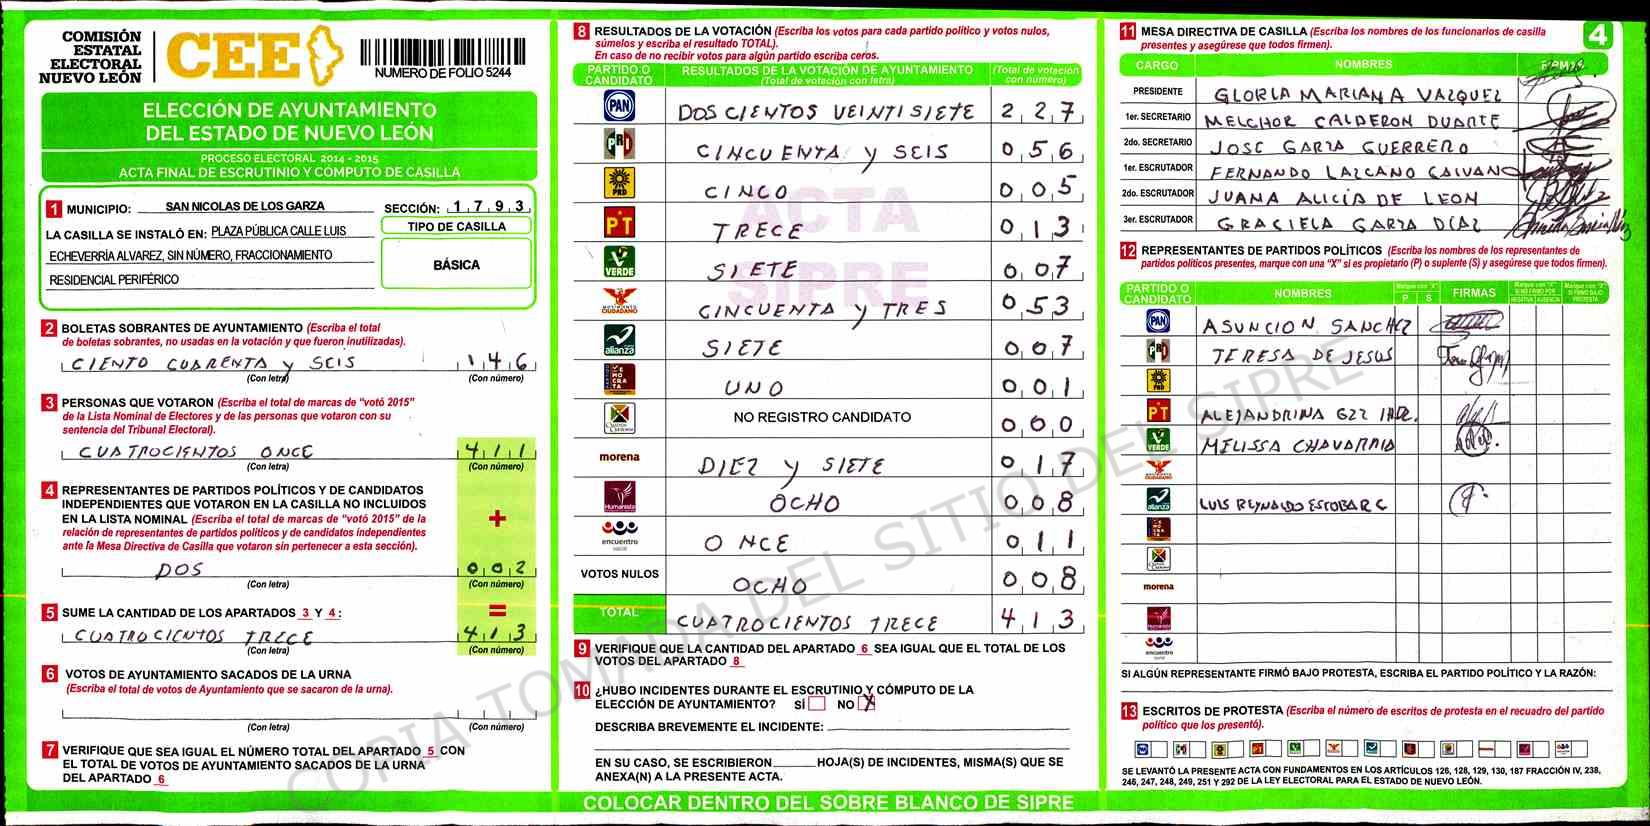 COMISIÓN
ESTATAL
ELECTORAL
NUEVO LEÓN
CEE
NUMERO DE FOLIO 5244
ELECCIÓN DE AYUNTAMIENTO
DEL ESTADO DE NUEVO LEÓN
PROCESO ELECTORAL 2014 - 2015
ACTA FINAL DE ESCRUTINIO Y CÓMPUTO DE CASILLA
1 MUNICIPIO: SAN NICOLAS DE LOS GARZA SECCIÓN: 1 7 9 3
LA CASILLA SE INSTALÓ EN: PLAZA PÚBLICA CALLE LUIS
ECHEVERRÍA ALVAREZ, SIN NÚMERO, FRACCIONAMIENTO
RESIDENCIAL PERIFÉRICO
TIPO DE CASILLA
BÁSICA
2 BOLETAS SOBRANTES DE AYUNTAMIENTO (Escriba el total
de boletas sobrantes, no usadas en la votación y que fueron inutilizadas).
CIENTO CUARENTA y SEIS 1 4 6
(Con letra) (Con número)
3 PERSONAS QUE VOTARON (Escriba el total de marcas de "votó 2015"
de la Lista Nominal de Electores y de las personas que votaron con su
sentencia del Tribunal Electoral).
CUATROCIENTOS ONCE 4 1 1
(Con letra) (Con número)
4 REPRESENTANTES DE PARTIDOS POLÍTICOS Y DE CANDIDATOS
INDEPENDIENTES QUE VOTARON EN LA CASILLA NO INCLUIDOS
EN LA LISTA NOMINAL (Escriba el total de marcas de "votó 2015" de la
relación de representantes de partidos políticos y de candidatos independientes
ante la Mesa Directiva de Casilla que votaron sin pertenecer a esta sección).
+
DOS 0 0 2
(Con letra) (Con número)
5 SUME LA CANTIDAD DE LOS APARTADOS 3 Y 4: =
CUATROCIENTOS TRECE 4 1 3
(Con letra) (Con número)
6 VOTOS DE AYUNTAMIENTO SACADOS DE LA URNA
(Escriba el total de votos de Ayuntamiento que se sacaron de la urna).
(Con letra) (Con número)
7 VERIFIQUE QUE SEA IGUAL EL NÚMERO TOTAL DEL APARTADO 5 CON
EL TOTAL DE VOTOS DE AYUNTAMIENTO SACADOS DE LA URNA
DEL APARTADO 6
8 RESULTADOS DE LA VOTACIÓN (Escriba los votos para cada partido político y votos nulos,
súmelos y escriba el resultado TOTAL).
En caso de no recibir votos para algún partido escriba ceros.
PARTIDO O CANDIDATO RESULTADOS DE LA VOTACIÓN DE AYUNTAMIENTO (Total de votación con letra) (Total de votación con número)
PAN DOSCIENTOS VEINTISIETE 2 2 7
PRI CINCUENTA y SEIS 0 5 6
PRD CINCO 0 0 5
PT TRECE 0 1 3
VERDE SIETE 0 0 7
MOVIMIENTO CIUDADANO CINCUENTA y TRES 0 5 3
alianza SIETE 0 0 7
UNO 0 0 1
NO REGISTRO CANDIDATO 0 0 0
morena DIEZ y SIETE 0 1 7
Humanista OCHO 0 0 8
encuentro social ONCE 0 1 1
VOTOS NULOS OCHO 0 0 8
TOTAL CUATROCIENTOS TRECE 4 1 3
ACTA
SIPRE
9 VERIFIQUE QUE LA CANTIDAD DEL APARTADO 6 SEA IGUAL QUE EL TOTAL DE LOS
VOTOS DEL APARTADO 8
10 ¿HUBO INCIDENTES DURANTE EL ESCRUTINIO Y CÓMPUTO DE LA
ELECCIÓN DE AYUNTAMIENTO? SÍ NO X
DESCRIBA BREVEMENTE EL INCIDENTE:
EN SU CASO, SE ESCRIBIERON HOJA(S) DE INCIDENTES, MISMA(S) QUE SE
ANEXA(N) A LA PRESENTE ACTA.
COLOCAR DENTRO DEL SOBRE BLANCO DE SIPRE
11 MESA DIRECTIVA DE CASILLA (Escriba los nombres de los funcionarios de casilla
presentes y asegúrese que todos firmen).
4
CARGO NOMBRES FIRMAS
PRESIDENTE GLORIA MARIANA VAZQUEZ
1er. SECRETARIO MELCHOR CALDERON DUARTE
2do. SECRETARIO JOSE GARZA GUERRERO
1er. ESCRUTADOR FERNANDO LAZCANO GALVAN
2do. ESCRUTADOR JUANA ALICIA DE LEON
3er. ESCRUTADOR GRACIELA GARZA DIAZ
12 REPRESENTANTES DE PARTIDOS POLÍTICOS (Escriba los nombres de los representantes de
partidos políticos presentes, marque con una "X" si es propietario (P) o suplente (S) y asegúrese que todos firmen).
PARTIDO O CANDIDATO NOMBRES Marque con "X" P S FIRMAS
PAN ASUNCION SANCHEZ
PRI TERESA DE JESUS
PRD
PT ALEJANDRINA
VERDE MELISSA CHAVARRIA
alianza LUIS REYNALDO ESCOBAR C
morena
Humanista
encuentro social
SI ALGÚN REPRESENTANTE FIRMÓ BAJO PROTESTA, ESCRIBA EL PARTIDO POLÍTICO Y LA RAZÓN:
13 ESCRITOS DE PROTESTA (Escriba el número de escritos de protesta en el recuadro del partido
político que los presentó).
SE LEVANTÓ LA PRESENTE ACTA CON FUNDAMENTOS EN LOS ARTÍCULOS 126, 128, 129, 130, 187 FRACCIÓN IV, 238,
246, 247, 248, 249, 251 Y 292 DE LA LEY ELECTORAL PARA EL ESTADO DE NUEVO LEÓN.
COPIA TOMADA DEL SITIO DEL SIPRE